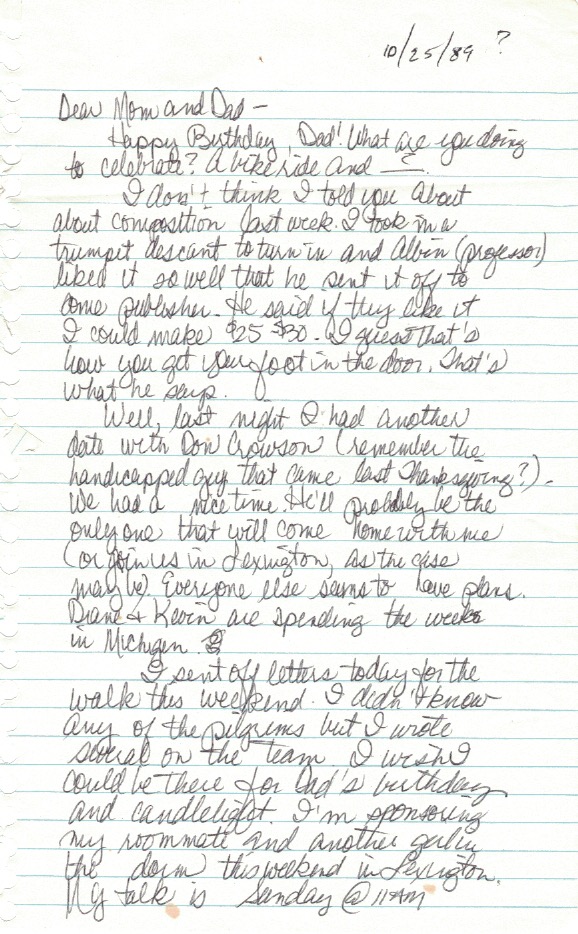 10/25/89 ?
Dear Mom and Dad -
Happy Birthday, Dad! What are you doing
to celebrate? A bike ride and ___?
I don't think I told you about
about composition last week. I took in a
trumpit descant to turn in and Albin (professor)
liked it so well that he sent it off to
some publisher. He said if they like it
I could make $25 $30. I guess that's
how you get your foot in the door. That's
what he says.
Well, last night I had another
date with Don Crowson (remember the
handicapped guy that came last Thanksgiving?) -
We had a nice time. He'll probably be the
only one that will come home with me
(or join us in Lexington, as the case
may be). Everyone else seems to have plans.
Diane & Kevin are spending the week
in Michigan.
I sent off letters today for the
walk this weekend. I didn't know
any of the pilgrims but I wrote
several on the team. I wish I
could be there for Dad's birthday
and candlelight. I'm sponsoring
my roommate and another girl in
the dorm this weekend in Lexington.
My talk is Sunday @ 11 AM